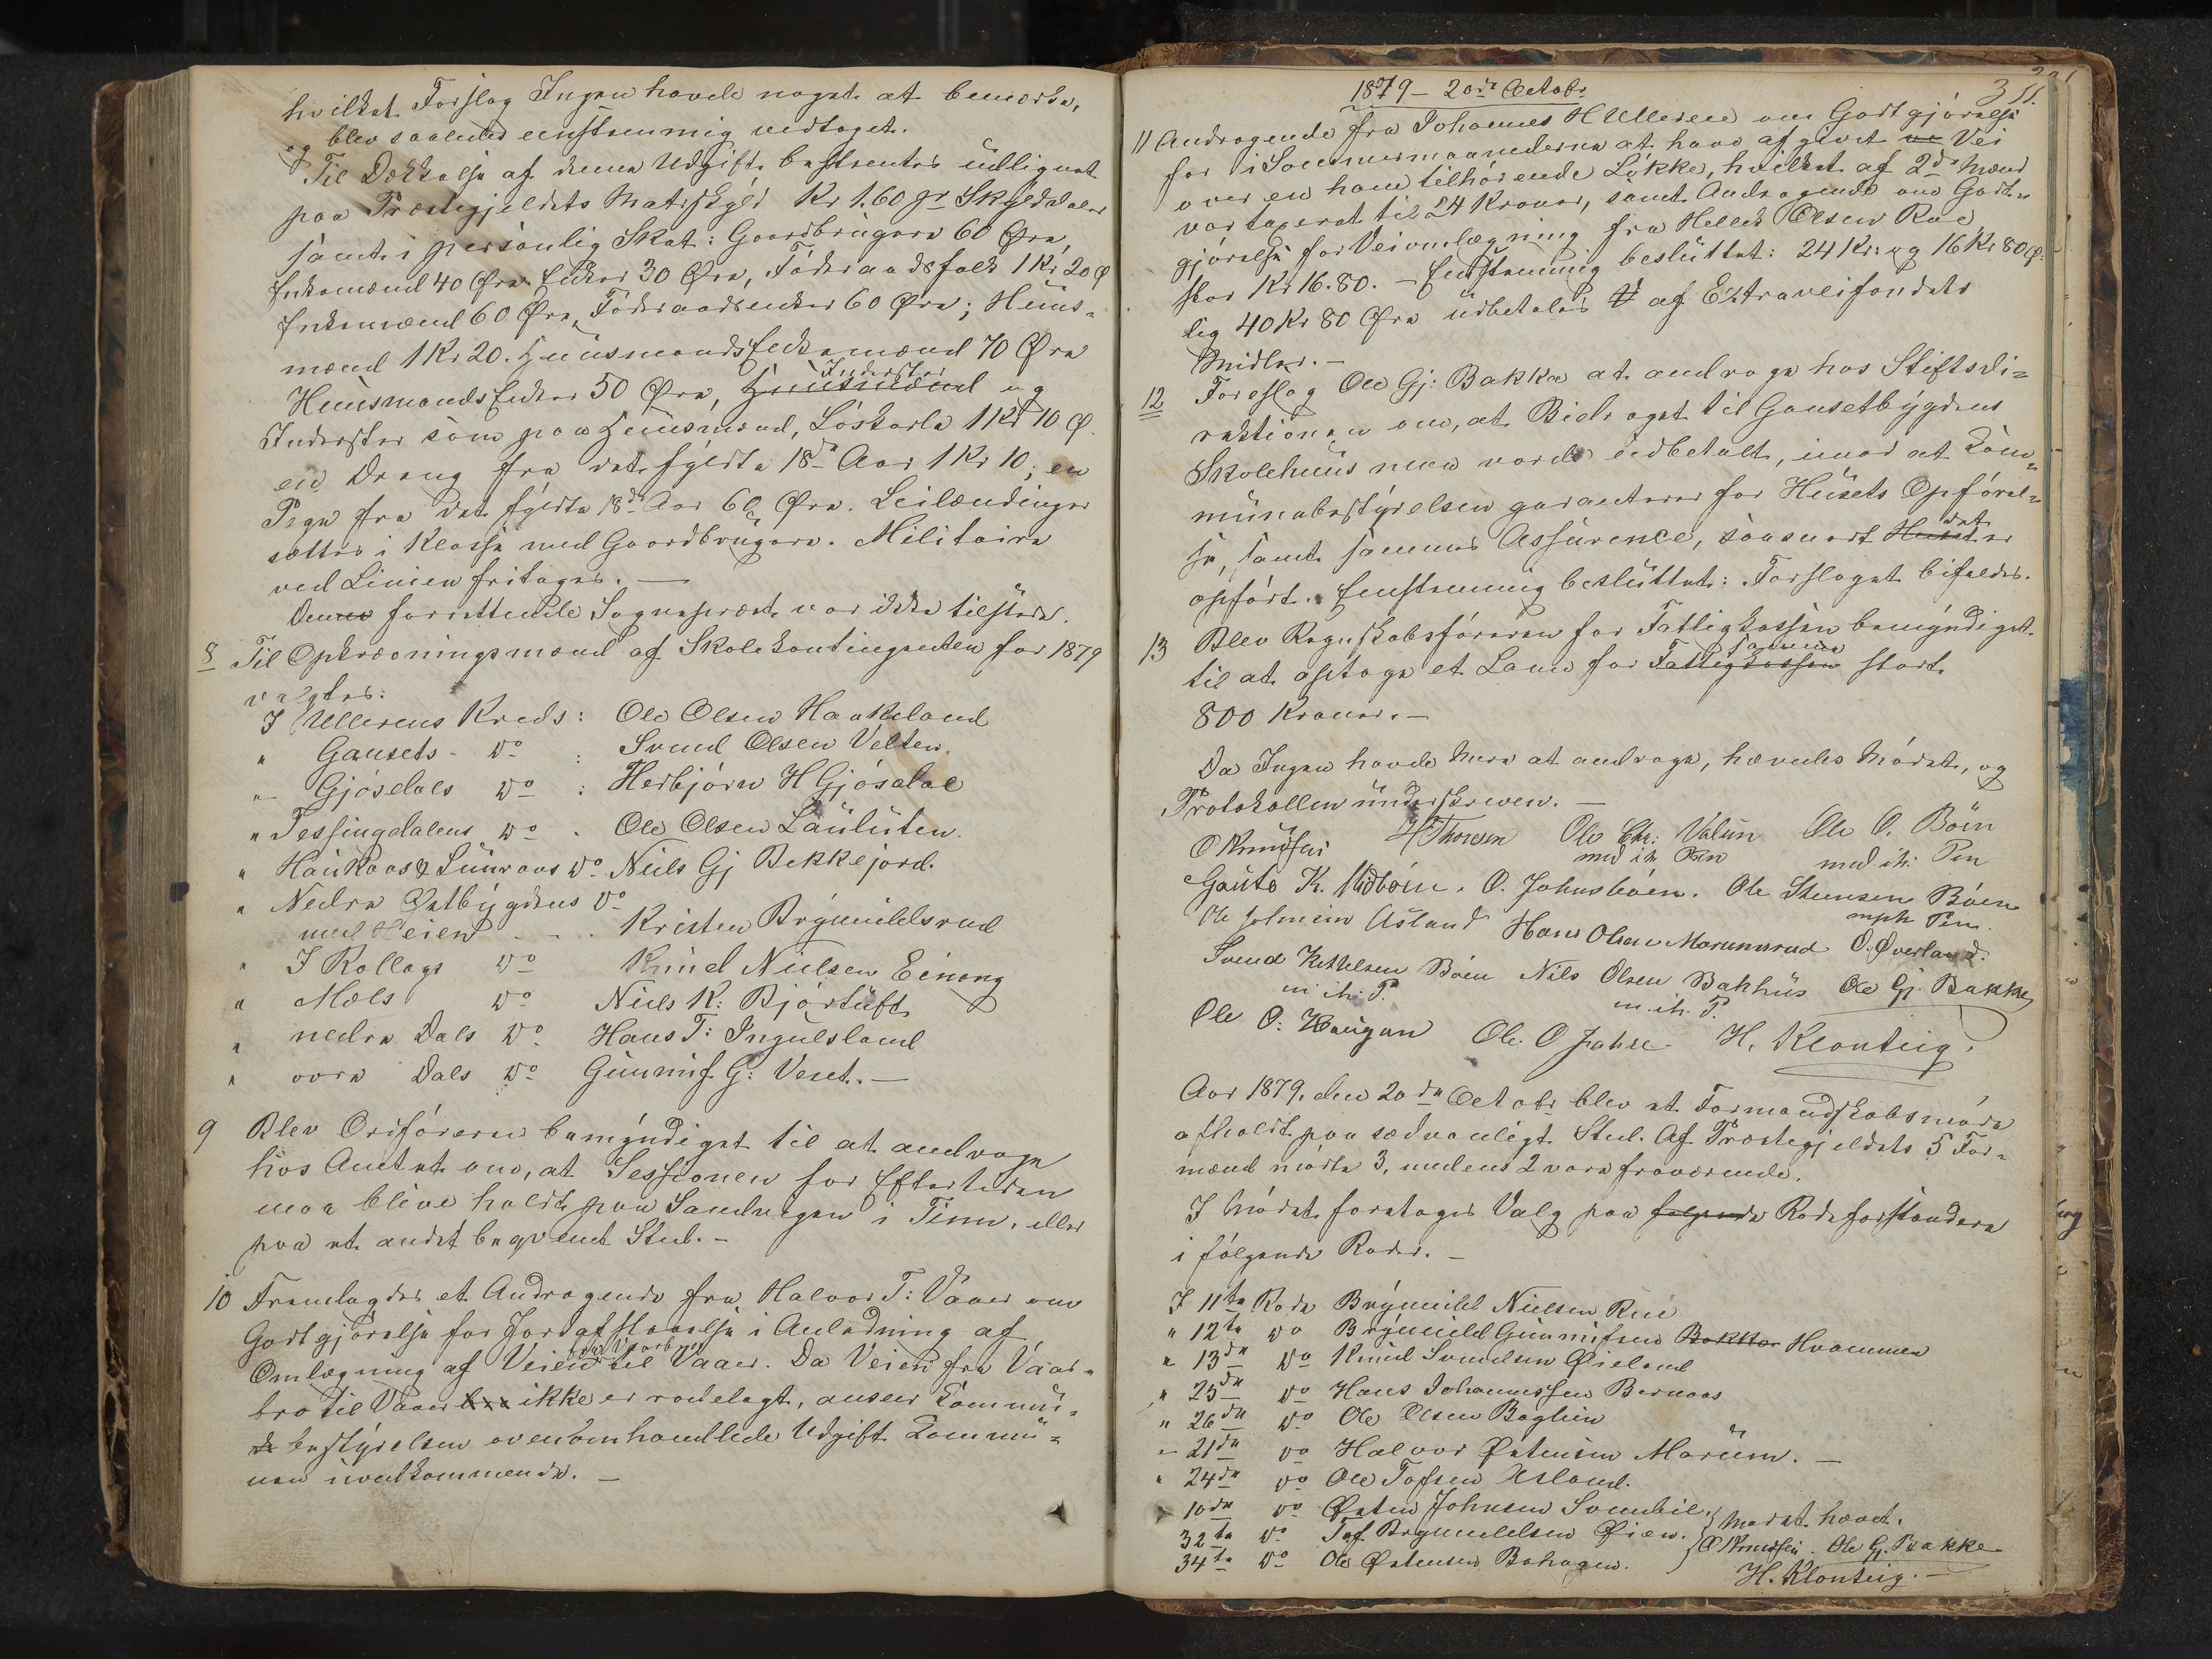 hvilket Forslag Ingen havde noget at bemærke,
og blev saaledes eenstemmig vedtaget.
Til Dækkelse af denne Udgift bestemtes udlignet
paa Præstegjeldets Matrskyld Kr 1.60 pr Skylddaler
samt i personlig Skat: Gaardbrugere 60 Øre,
Enkemænd 40 Øre Enker 30 Øre, Föderaadsfolk 1 Kr 20 Ø
Enkemænd 60 Øre, Föderaadsenker 60 Øre; Huus-
mænd 1 Kr 20. Huusmandsenkemænd 70 Øre
Huusmandsenker 50 Øre, Huusmænd Inderster og
Inderster som paa Huusmænd, Löskarle 1 Kr 10 Ø.
en Dreng fra det fyldte 18de Aar 1 Kr 10; en
Pige fra det fyldte 18de Aar 60 Øre. Leilændinger
sættes i Klasse med Gaardbrugere. Militaire
ved Linien fritages. —
Den forrettende Sognepræst var ikke tilstede.
8 Til Opkrævningsmænd af Skolekontingenten for 1879
valgtes:
I Ullerens Kreds: Ole Olsen Haukeland
" Gausets Do : Svend Olsen Velten.
" Gjösdals Do : Herbjörn H Gjösdal
" Tessingdalens Do . Ole Olsen Lauluten.
" Haukaas & Sunvaas Do. Niels Gj Bekkejord.
" Nedre Østbygdens Do
med Heien - . . Kristen Brynildsrud
" I Rollags Do Knud Nielsen Einong
" Mæls Do Niels K: Bjørtuft
" nedre Dals Do. Hans T: Ingulsland
" övre Dals Do Gunnuf. G: Veset. —
9 Blev Ordföreren bemyndiget til at andrage
hos Amtet om, at Sessionen for Eftertiden
maa blive holdt paa Sandvigen i Tinn, eller
paa et andet beqvemt Sted. -
10 Fremlagdes et Andragende fra Halvor T: Vaaer om
Godtgjörelse for Jordafstaaelse i Anledning af
Omlægning af Veien fra Vaarbro til Vaaer. Da Veien fra Vaar-
bro til Vaaer ikke er rodelagt, anseer Kommu-
bestyrelsen ovenomhandlede Udgift Kommu-
nen uvedkommende. —
1879 - 20de Octobr
311.
11 Andragende fra Johannes H Ulleren om Godtgjörelse
for i Sommermaanederne at have afgivet Vei
over en ham tilhörende Lökke, hvilket af 2de Mænd
var taxeret til 24 Kroner, samt Andragende om Godt-
gjörelse for Veiomlægning fra Hellek Olsen Rue
stor Kr 16.80. - Eenstemmig besluttet: 24 Kr: og 16 Kr 80 Ø.
lig 40 Kr 80 Øre udbetales af Extraveifondets
Midler. —
12 Foreslog Ole Gj: Bakka at andrage hos Stiftsdi-
rektionen om, at Bidraget til Gausetbygdens
Skolehuus maa vorde udbetalt, imod at Kom-
munebestyrelsen garanterer for Husets Opförel-
se, samt sammes Assurence, saasnart Huset det er
opfört. Eenstemmig besluttet: Forslaget bifaldes.
13 Blev Regnskabsföreren for Fattigkassen bemyndiget
til at optage et Laan for Fattigkassen samme stort
800 Kroner. —
Da Ingen havde mere at andrage, hævedes Mödet, og
Protokollen underskreven. —
O Knudsen H Thoresen Ole Chr: Valun Ole O. Böen
med ih Pen med ih: Pen
Gaute K. Midböen. O. Johnsböen. Ole Steensen Böen
mph Pen.
Ole Asland Hans Olsen Marumsrud O. Øverland.
Svend Kittelsen Böen Nils Olsen Bakhus Ole Gj. Bakke
m. ih: P. m. ih. P.
Ole O: Haugan Ole. O H. Klonteig.
Aar 1879. den 20de Octobr blev et Formandskabsmöde
afholdt paa sædvanligt Sted. Af Præstegjeldets 5 For-
mænd mödte 3, medens 2 vare fraværende.
I Mödet foretoges Valg paa følgende Rodeforstandere
i fölgende Roder. —
I 11te Rode Brynild Nielsen Rue
" 12te Do Brynild Gunnufsen Bakka Hvammen
" 13de Do Knud Svendsen Øieland
" 25de Do Hans Johannessen Bernaas
" 26de Do Ole Olsen Böglien
" 21de Do Halvor Østensen Marum. —
" 24de Do Ole Tofsen Usland.
" 10de Do Østen Johnsen Sombil.
32te Do Tof Brynildsen Øien.
34te Do Ole Østensen Bøhagen.
Mødet hævet.
O Knudsen. Ole Gj. Bakke
H. Klonteig. —